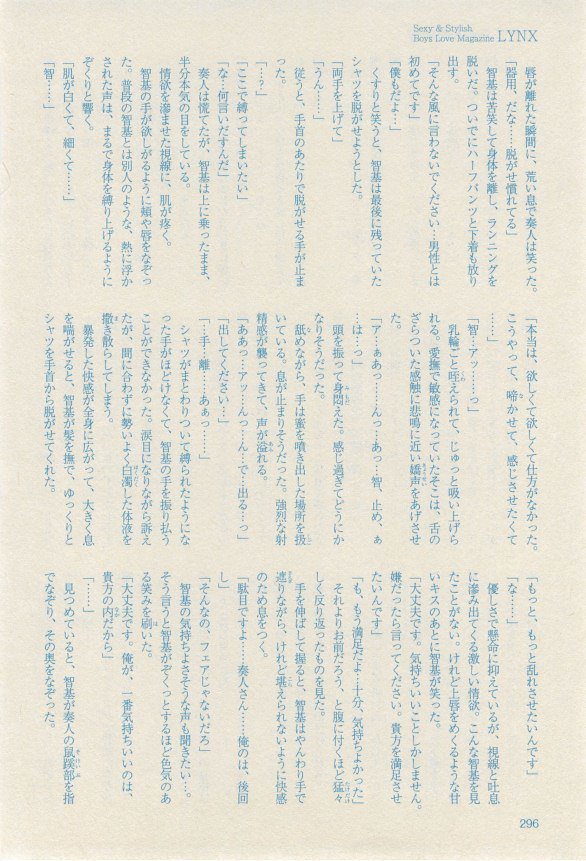 Sexy & Stylish
Boys Love Magazine LYNX
唇が離れた瞬間に、荒い息で奏人は笑った。
「器用、だな……脱がせ慣れてる」
智基は苦笑して身体を離し、ランニングを
脱いだ。ついでにハーフパンツと下着も放り
出す。
「そんな風に言わないでください…男性とは
初めてです」
「僕もだよ…」
くすりと笑うと、智基は最後に残っていた
シャツを脱がせようとした。
「両手を上げて」
「うん……」
従うと、手首のあたりで脱がせる手が止ま
った。
「…?」
「ここで縛ってしまいたい」
「な…何言いだすんだ」
奏人は慌てたが、智基は上に乗ったまま、
半分本気の目をしている。
情欲を滲ませた視線に、肌が疼く。
智基の手が欲しがるように頬や唇をなぞっ
た。普段の智基とは別人のような、熱に浮か
された声は、まるで身体を縛り上げるように
ぞくりと響く。
「肌が白くて、細くて……」
「智…」
「本当は、欲しくて欲しくて仕方がなかった。
こうやって、啼かせて、感じさせたくて
……」
「智…アッ……っ」
乳輪ごと咥えられて、じゅっと吸い上げら
れる。愛撫で敏感になっていたそこは、舌の
ざらついた感触に悲鳴に近い嬌声をあげさせ
た。
「ア…ぁあっ……んっ…あっ…智、止め、ぁ
…はっ」
頭を振って身悶えた。感じ過ぎてどうにか
なりそうだった。
舐めながら、手は蜜を噴き出した場所を扱
いている。息が止まりそうだった。強烈な射
精感が襲ってきて、声が溢れる。
「ああっ…アッ…んっ…ん…で…出る…っ」
「出してください…」
「…手…離……あぁっ……」
シャツがまとわりついて縛られたようにな
った手がほどけなくて、智基の手を振り払う
ことができなかった。涙目になりながら訴え
たが、間に合わずに勢いよく白濁した体液を
撒き散らしてしまう。
暴発した快感が全身に広がって、大きく息
を喘がせると、智基が髪を撫で、ゆっくりと
シャツを手首から脱がせてくれた。
「もっと、もっと乱れさせたいんです」
「な……」
優しさで懸命に抑えているが、視線と吐息
に滲み出てくる激しい情欲。こんな智基を見
たことがない。けれど上唇をめくるような甘
いキスのあとに智基が笑った。
「大丈夫です。気持ちいいことしかしません。
嫌だったら言ってください。貴方を満足させ
たいんです」
「も、もう満足だよ…十分、気持ちよかった」
それよりお前だろう、と腹に付くほど猛々
しく反り返ったものを見た。
手を伸ばして握ると、智基はやんわり手で
遮りながら、けれど堪えられないように快感
のため息をつく。
「駄目ですよ……奏人さん……俺のは、後回
し」
「そんなの、フェアじゃないだろ」
智基の気持ちよさそうな声も聞きたい…。
そう言うと智基がぞくっとするほど色気のあ
る笑みを刷いた。
「大丈夫です。俺が、一番気持ちいいのは、
貴方の内だから」
「……」
見つめていると、智基が奏人の鼠蹊部を指
でなぞり、その奥をなぞった。
296